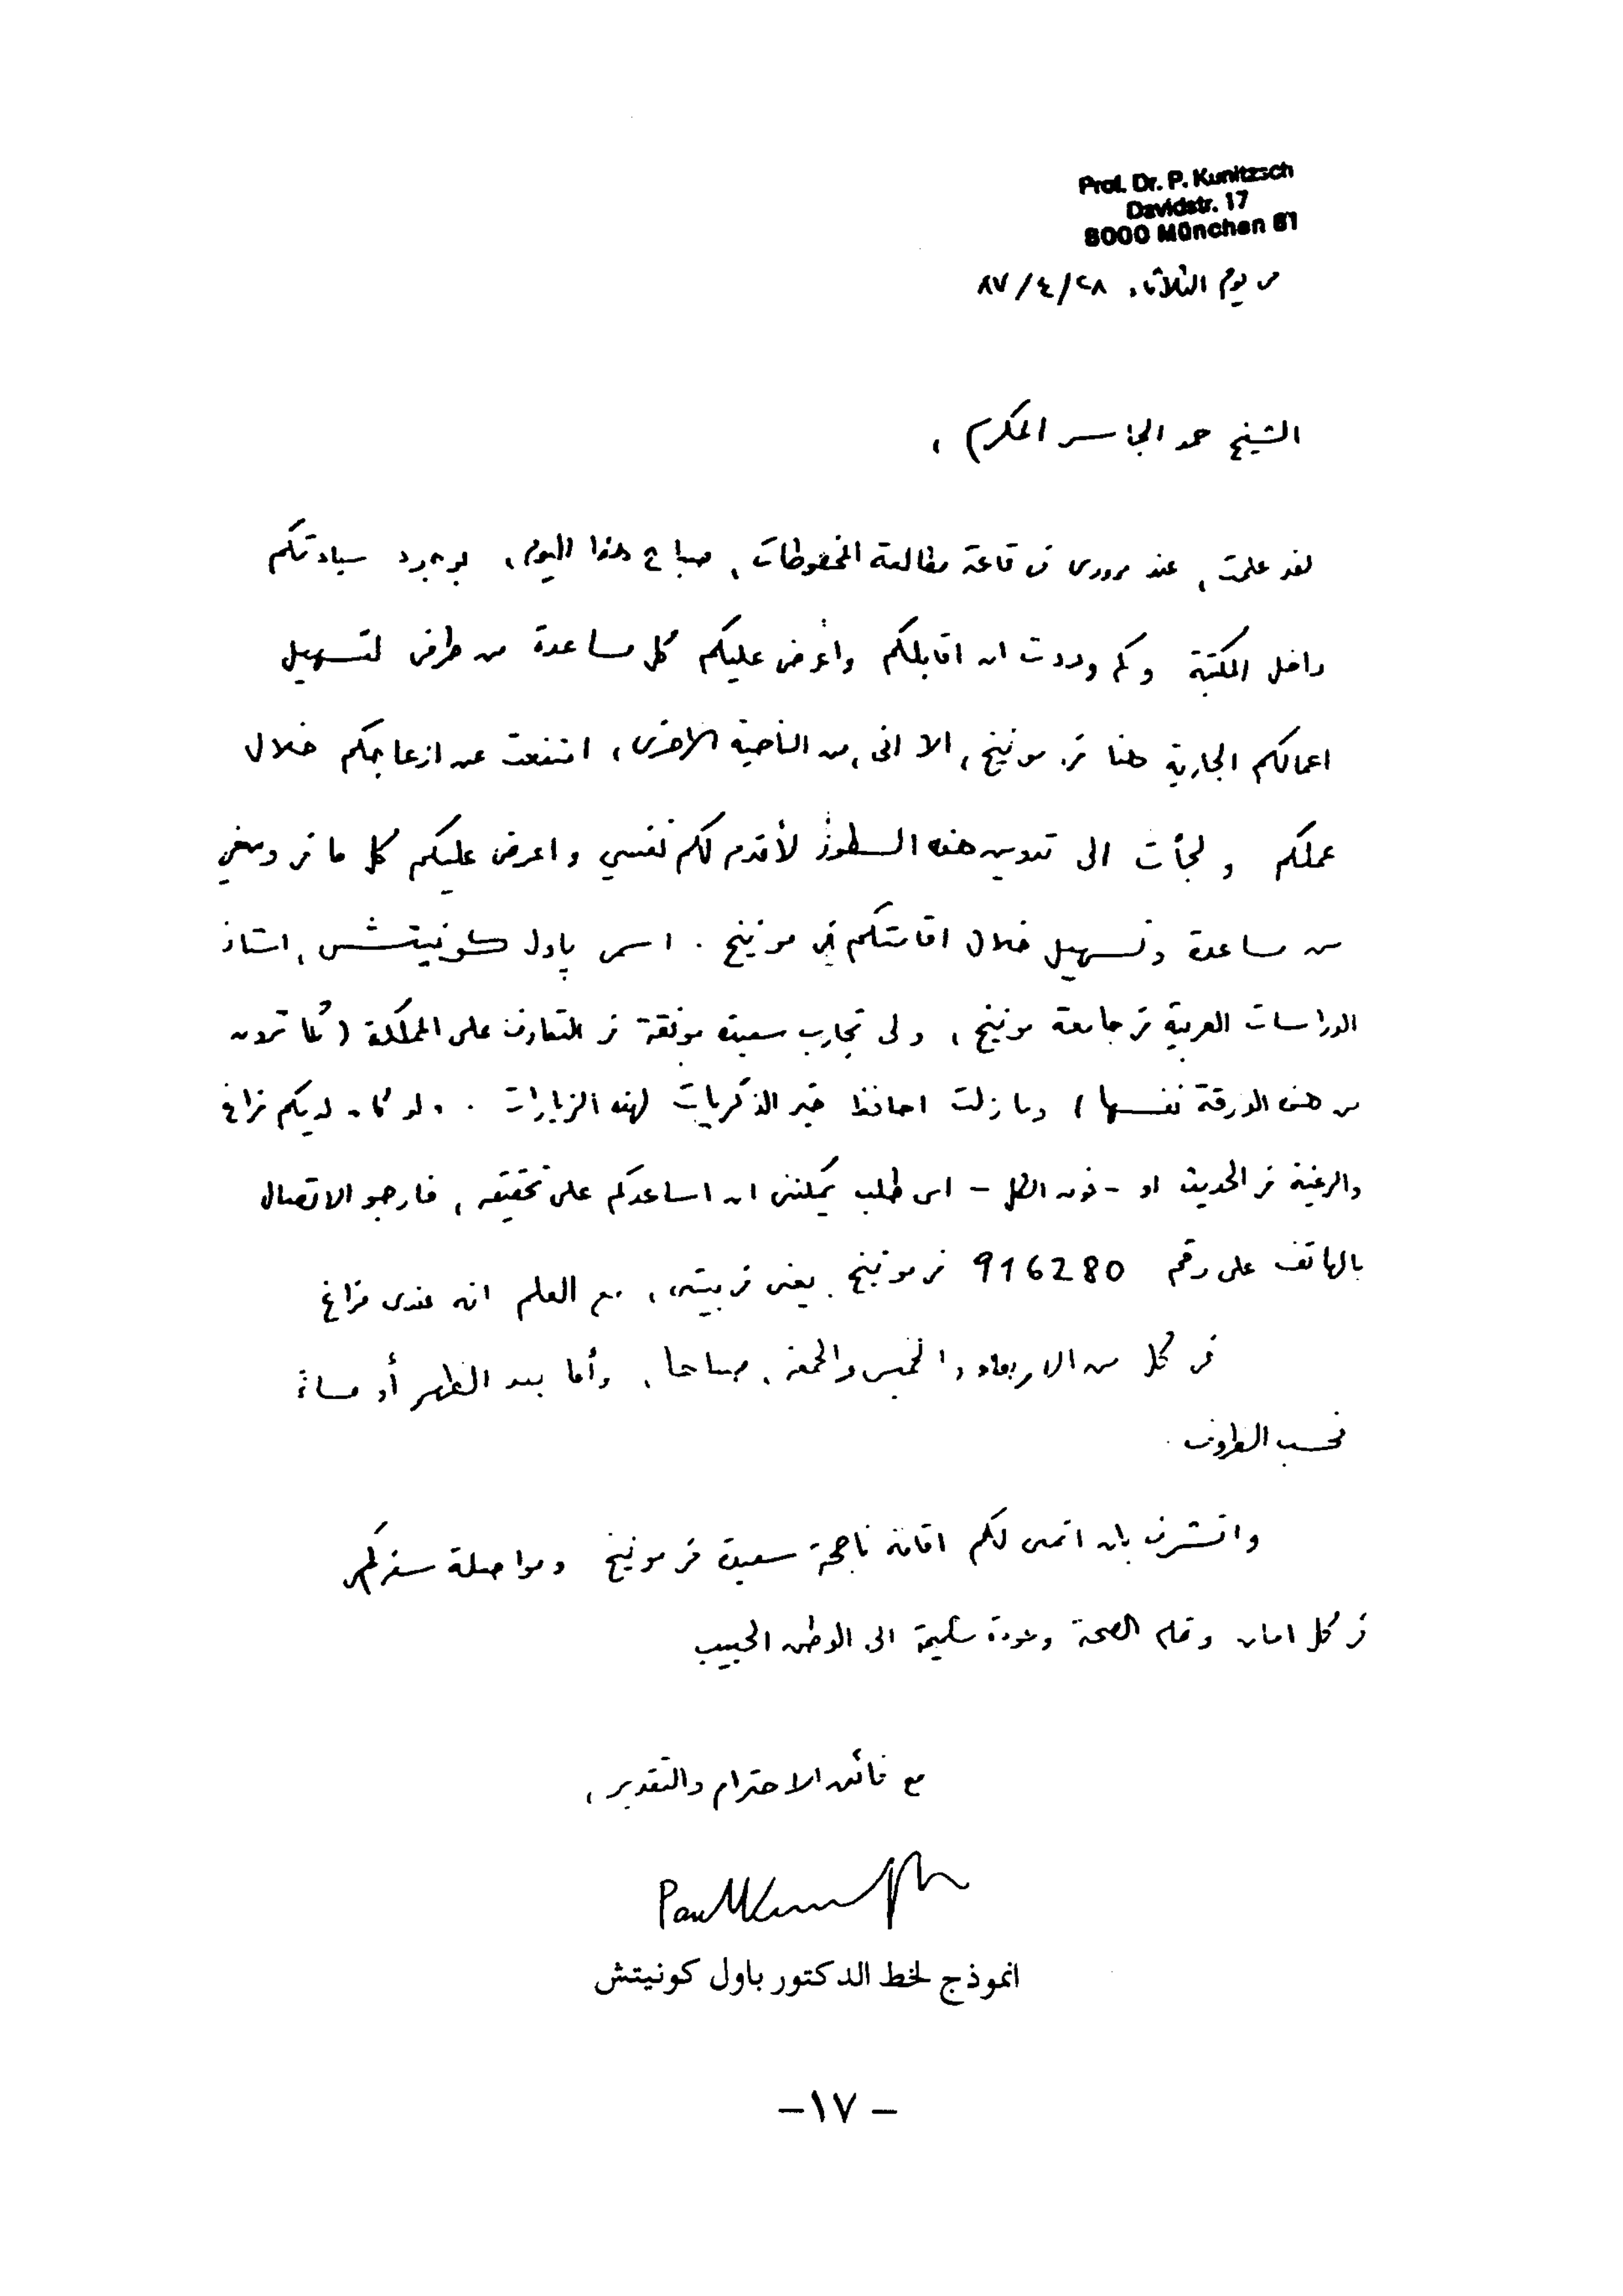 Prof. Dr. P. Kunitzsch
Davidstr. 17
8000 München 81
من يوم الثلاثاء ٢٨/٤/٨٧
الشيخ حمد الجاسر المكرم ،
لقد علمت ، عند مرورى فى قاعة مطالعة المخطوطات ، صباح هذا اليوم ، بوجود سيادتكم
داخل المكتبة وكم وددت ان اقابلكم وأعرض عليكم كل مساعدة من طرفى لتسهيل
اعمالكم الجارية هنا فى مونيخ ، الا انى ، من الناحية الاخرى ، امتنعت عن ازعاجكم خلال
عملكم ولجأت الى تدوين هذه السطور لأقدم لكم نفسي واعرض عليكم كل ما فى وسعي
من مساعدة وتسهيل خلال اقامتكم في مونيخ . اسمى پاول كونيتش ، استاذ
الدراسات العربية فى جامعة مونيخ ، ولى تجارب سعيدة موفقة فى التعارف على المملكة ( كما ترون
من هذه الورقة نفسها ) وما زلت احافظ خير الذكريات لهذه الزيارات . ولو كان لديكم فراغ
والرغبة فى الحديث او - فوق الكل - اى طلب يمكننى ان اساعدكم على تحقيقه ، فارجو الاتصال
بالهاتف على رقم 916280 فى مونيخ يعنى فى بيتى ، مع العلم انه عندى فراغ
فى كل من الاربعاء والخميس والجمعة ، صباحا ، وأما بعد الظهر أو مساءً
فحسب الظروف .
واتشرف بان اتمنى لكم اقامة ناجحة سعيدة فى مونيخ ومواصلة سفركم
فى كل امان وتمام الصحة وعودة سليمة الى الوطن الحبيب
مع فائق الاحترام والتقدير ،
Paul Kunitzsch
انموذج لخط الدكتور باول كونيتش
- ١٧ -